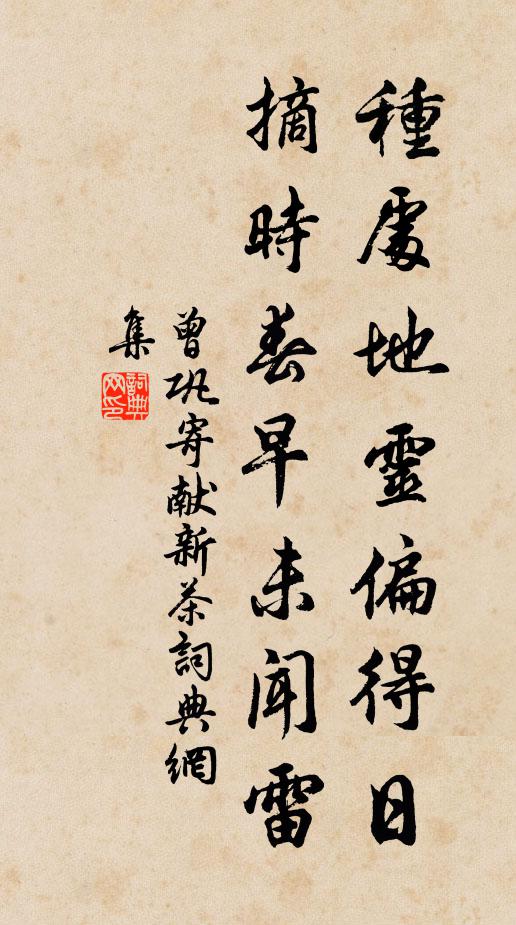 種處地靈偏得日
摘時春早未聞雷
曾巩寄献新茶詞典網
集
詞典网印